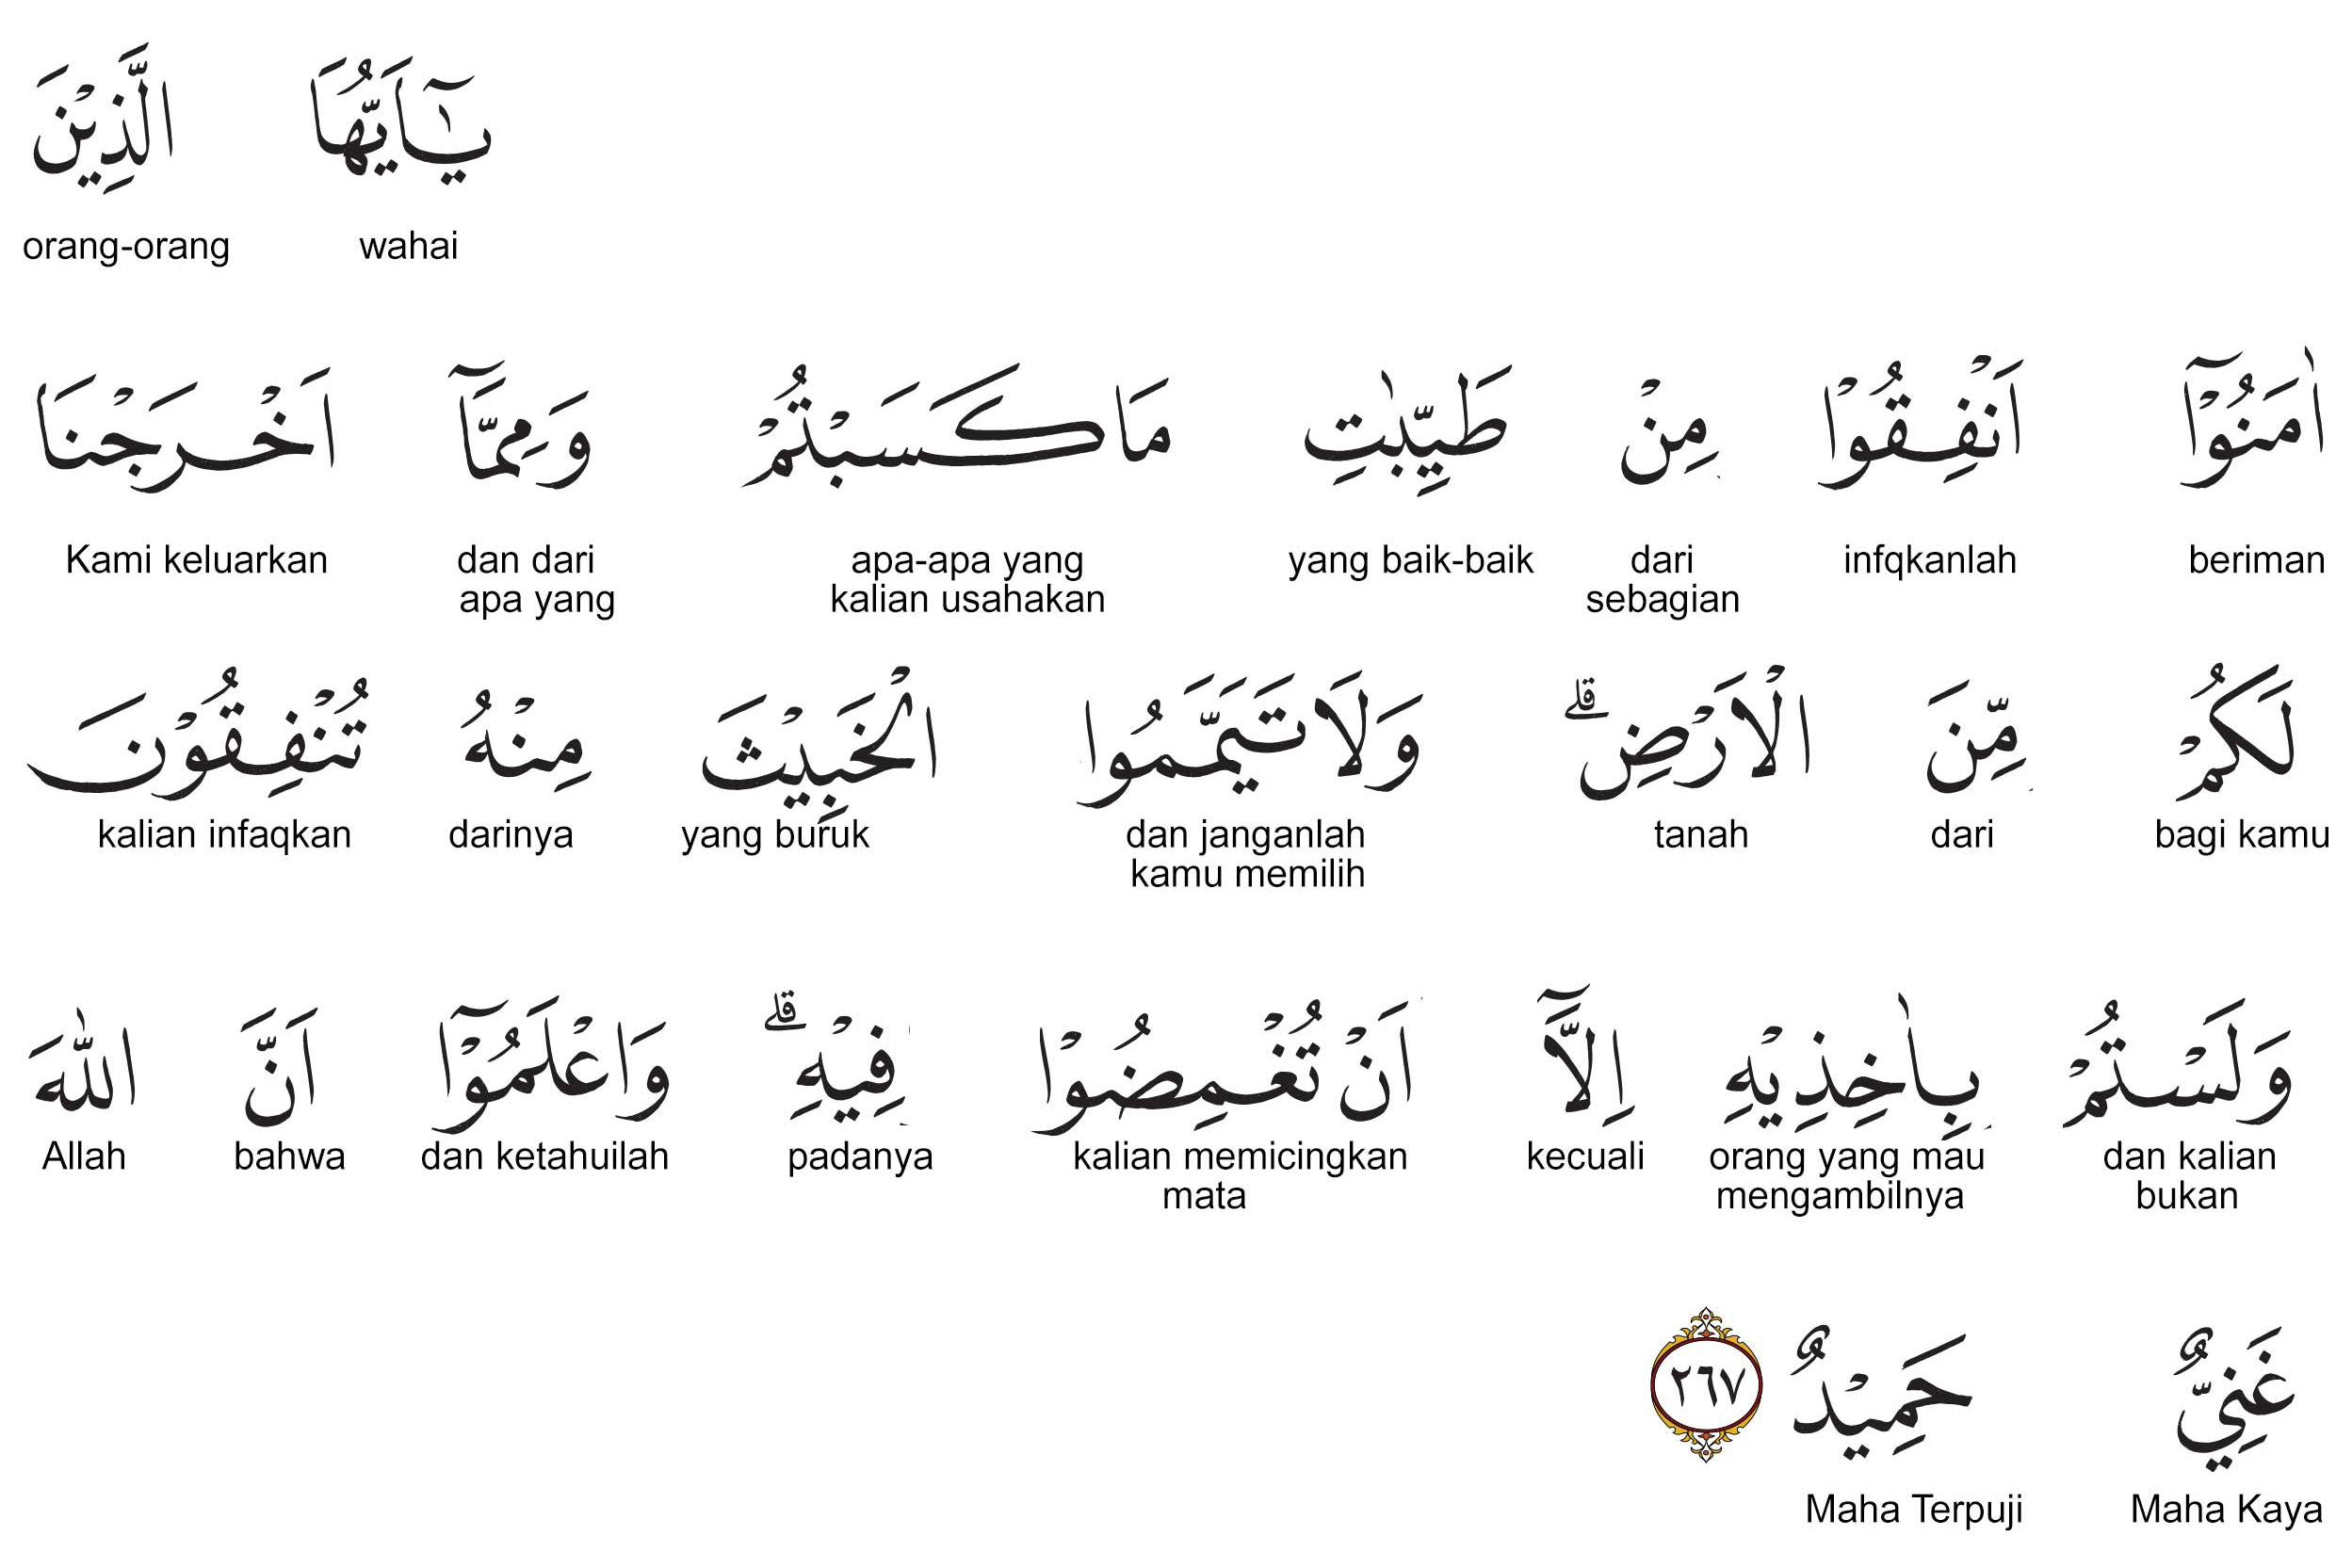 يٰٓاَيُّهَا الَّذِيْنَ
wahai orang-orang
اٰمَنُوْٓا اَنْفِقُوْا مِنْ طَيِّبٰتِ مَا كَسَبْتُمْ وَمِمَّآ اَخْرَجْنَا
beriman infqkanlah dari sebagian yang baik-baik apa-apa yang kalian usahakan dan dari apa yang Kami keluarkan
لَكُمْ مِّنَ الْاَرْضِ ۗ وَلَا تَيَمَّمُوا الْخَبِيْثَ مِنْهُ تُنْفِقُوْنَ
bagi kamu dari tanah dan janganlah kamu memilih yang buruk darinya kalian infaqkan
وَلَسْتُمْ بِاٰخِذِيْهِ اِلَّآ اَنْ تُغْمِضُوْا فِيْهِ ۗ وَاعْلَمُوْٓا اَنَّ اللّٰهَ
dan kalian bukan orang yang mau mengambilnya kecuali kalian memicingkan mata padanya dan ketahuilah bahwa Allah
غَنِيٌّ حَمِيْدٌ ٢٦٧
Maha Kaya Maha Terpuji